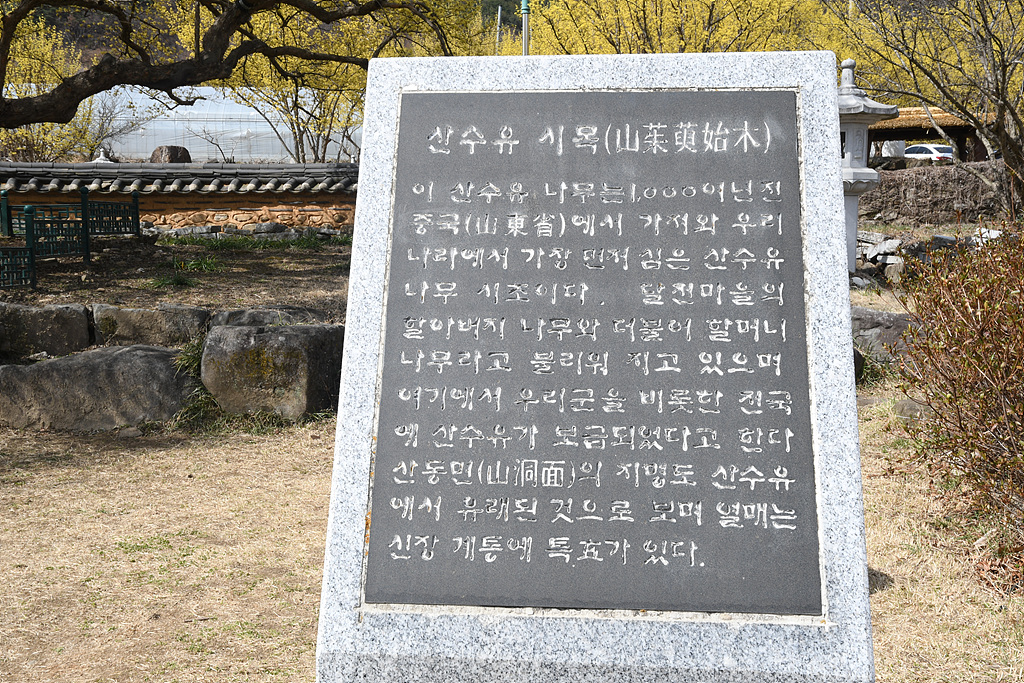 산수유 시목(山茱萸始木)
이 산수유 나무는1,000여년전
중국(山東省)에서 가져와 우리
나라에서 가장 먼저 심은 산수유
나무 시조이다. 달전마을의
할아버지 나무와 더불어 할머니
나무라고 불리워 지고 있으며
여기에서 우리군을 비롯한 전국
에 산수유가 보급되었다고 한다
산동면(山洞面)의 지명도 산수유
에서 유래된 것으로 보며 열매는
신장 계통에 특효가 있다.